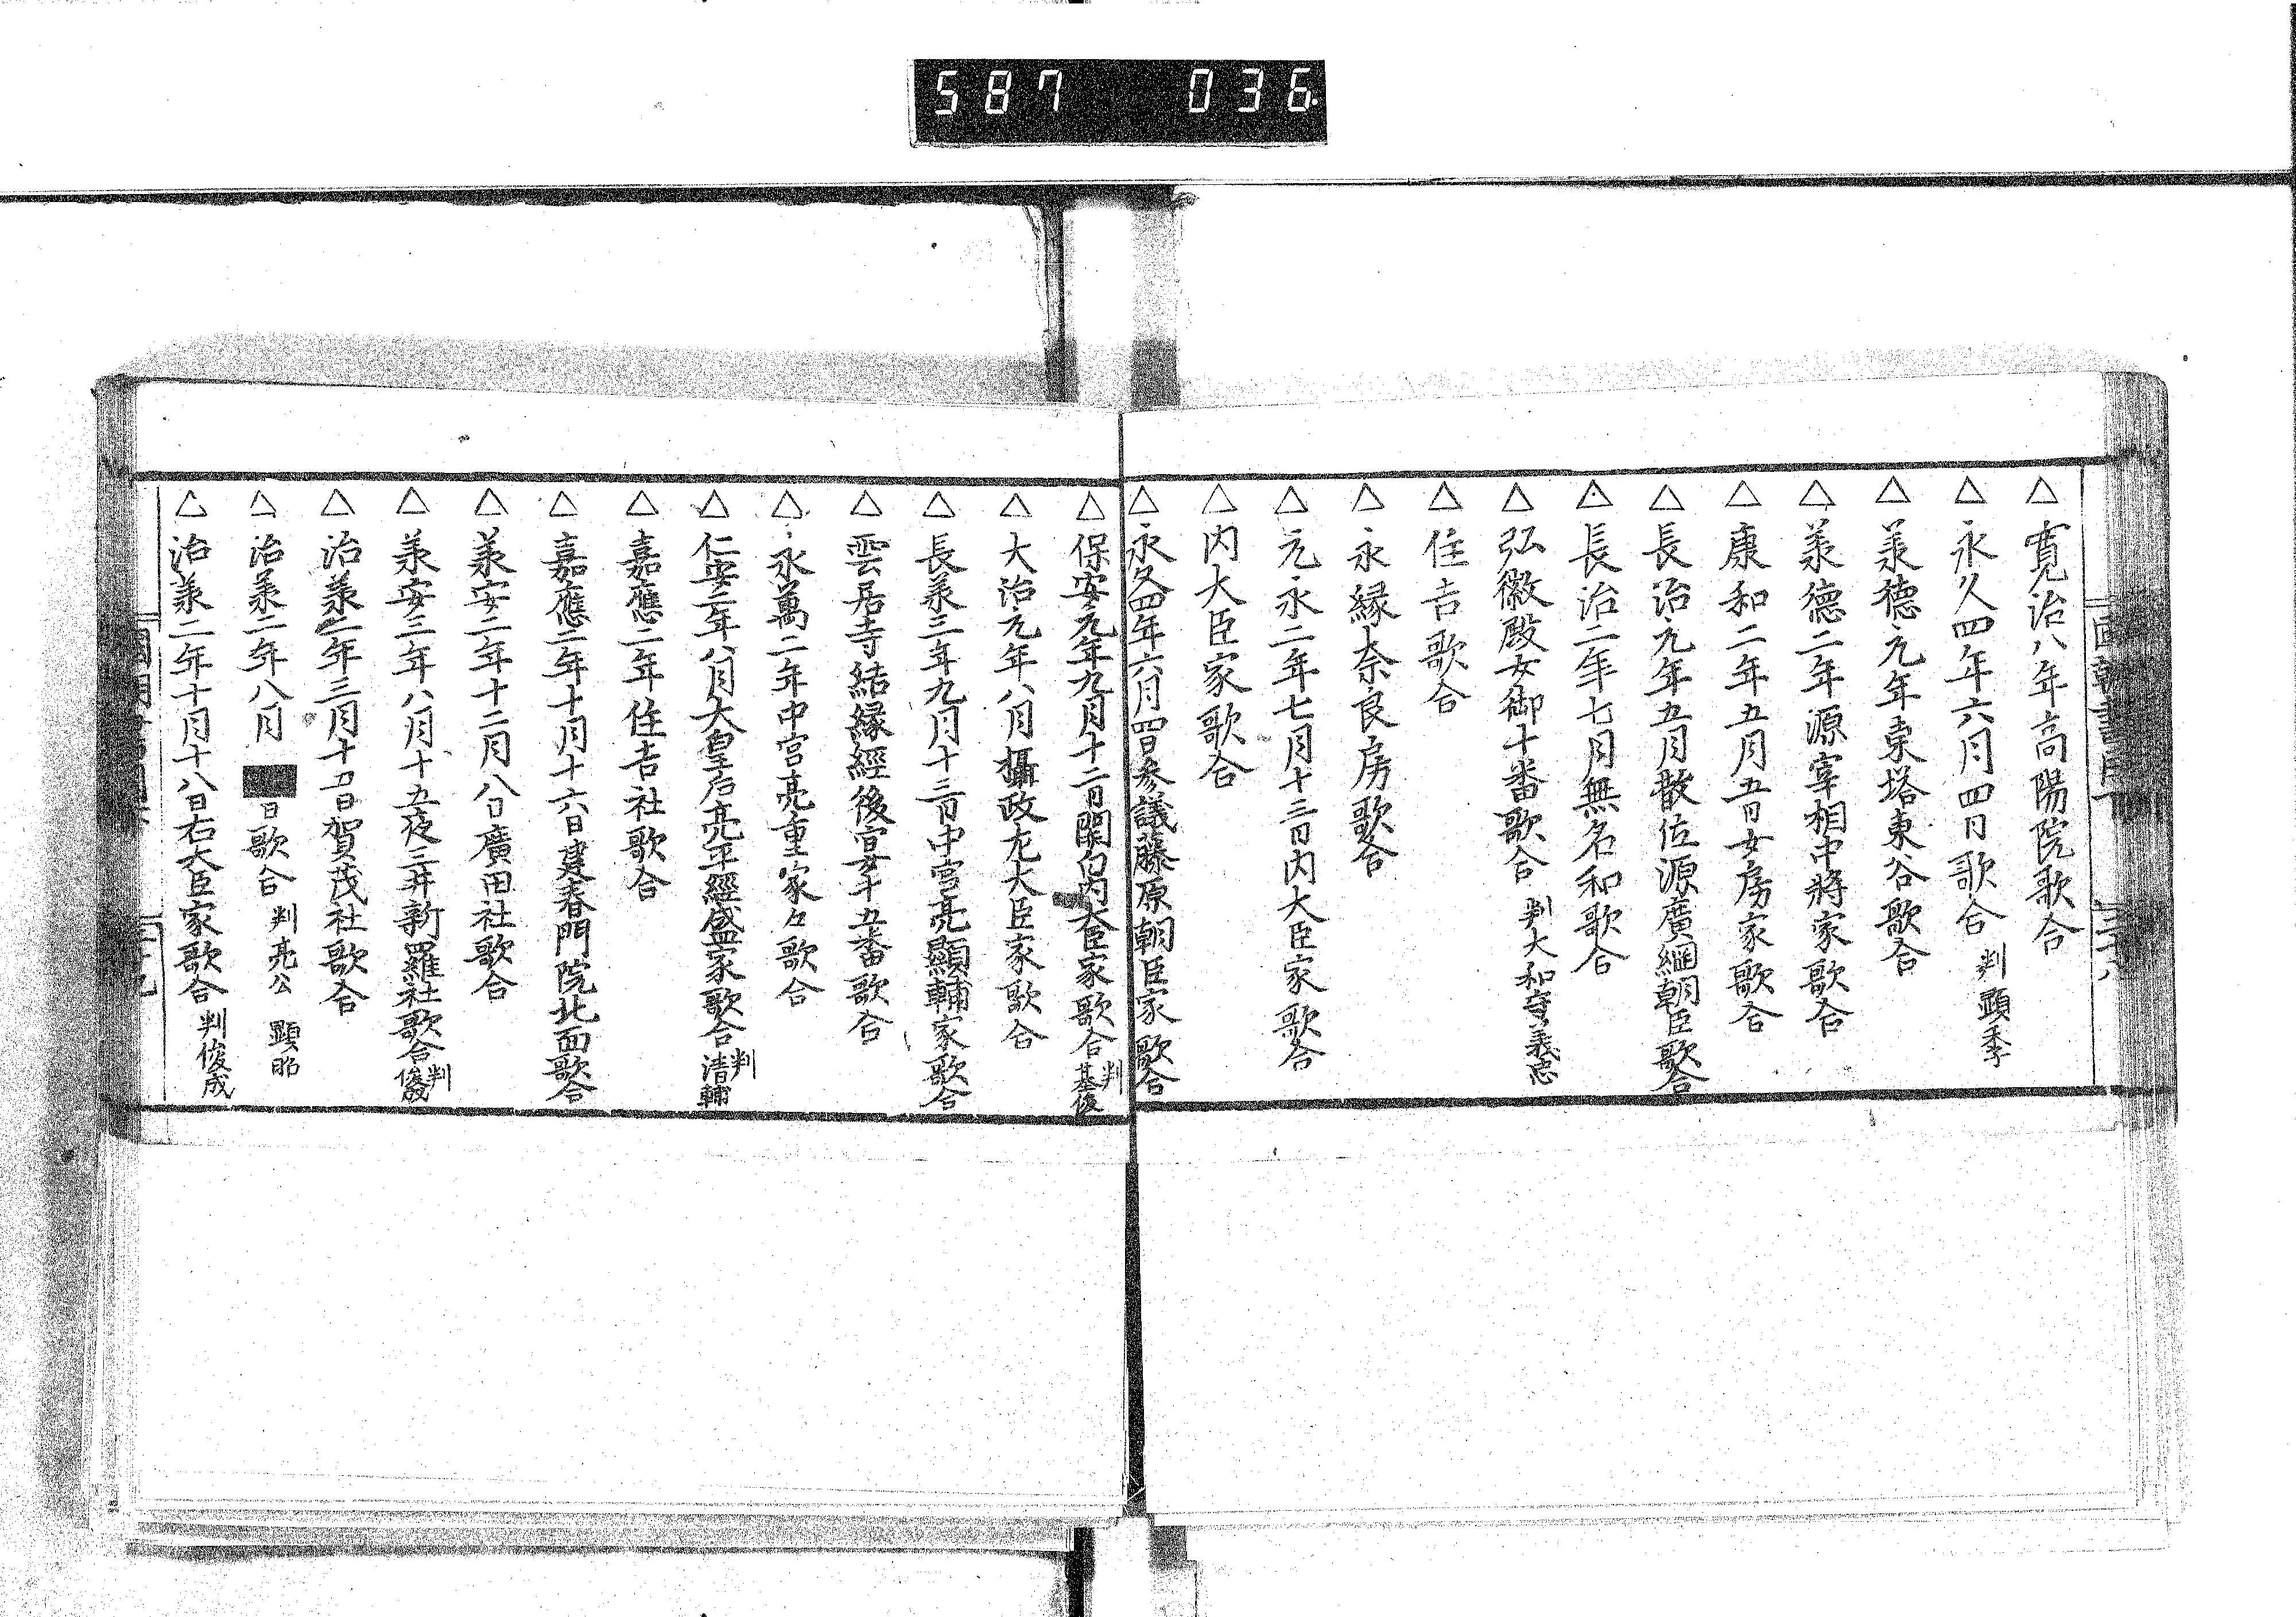 587 036
△寛治八年高陽院歌合
△永久四年六月四日歌合 判顕季
△羕德元年東塔東谷歌合
△羕德二年源宰相中將家歌合
△康和二年五月五日女房家歌合
△長治元年五月散位源廣綱朝臣歌合
△長治二年七月無名和歌合
△弘徽殿女御十番歌合 判大和守義忠
△住吉歌合
△永縁奈良房歌合
△元永二年七月十三日内大臣家歌合
△内大臣家歌合
△永久四年六月四日参議藤原朝臣家歌合
△保安元年九月十二日関白内大臣家歌合 判基俊
△大治元年八月攝政左大臣家歌合
△長羕三年九月十三日中宮亮顯輔家歌合
△雲居寺結縁經後宴十五番歌合
△永萬二年中宮亮重家々歌合
△仁安二年八月大皇后亮平經盛家歌合 判清輔
△嘉應二年住吉社歌合
△嘉應二年十月十六日建春門院北面歌合
△羕安二年十二月八日廣田社歌合
△羕安三年八月十五夜三井新羅社歌合 判俊成
△治羕二年三月十五日賀茂社歌合
△治羕二年八月 日歌合 判亮公 顕昭
△治羕二年十月十八日右大臣家歌合 判俊成